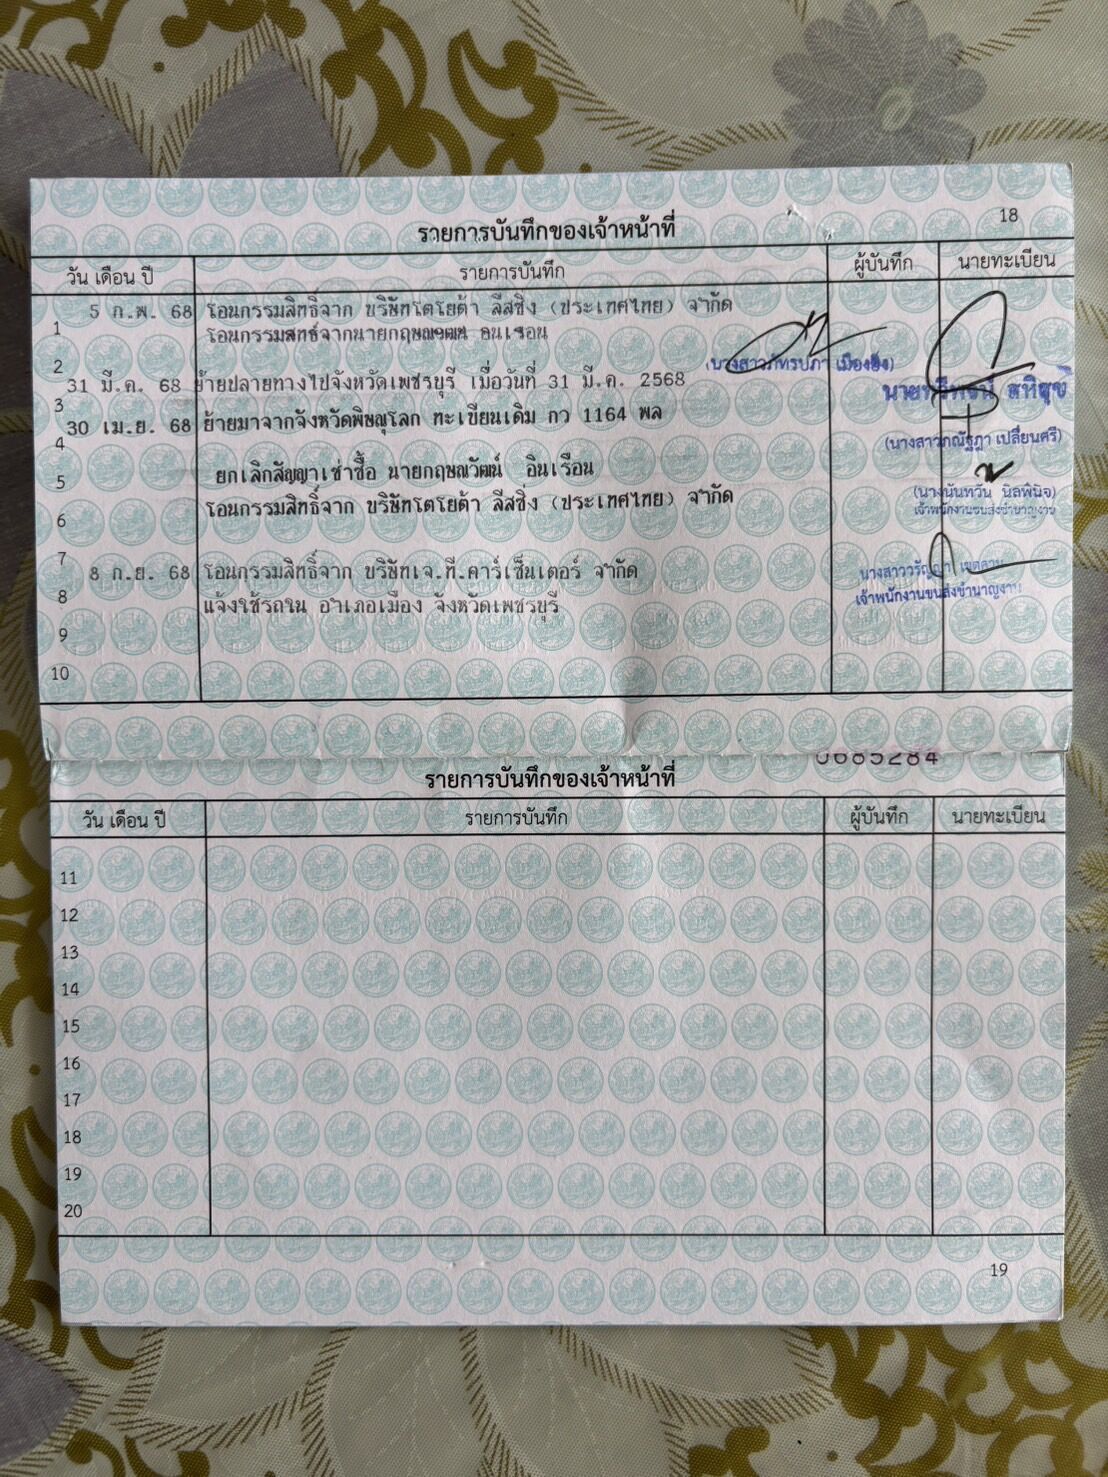 18
รายการบันทึกของเจ้าหน้าที่
วัน เดือน ปี รายการบันทึก ผู้บันทึก นายทะเบียน
5 ก.พ. 68 โอนกรรมสิทธิ์จาก บริษัทโตโยต้า ลีสซิ่ง (ประเทศไทย) จำกัด
1 โอนกรรมสิทธิ์จากนายกฤษณวัฒน์ อินเรือน
2 เมืองยิง)
31 มี.ค. 68 ย้ายปลายทางไปจังหวัดเพชรบุรี เมื่อวันที่ 31 มี.ค. 2568
3
30 เม.ย. 68 ย้ายมาจากจังหวัดพิษณุโลก ทะเบียนเดิม กว 1164 พล
4 (นางสาวกณัฐฎา เปลี่ยนศรี)
5 ยกเลิกสัญญาเช่าซื้อ นายกฤษณวัฒน์ อินเรือน
(นางนันทวัน นิลพินิจ)
6 โอนกรรมสิทธิ์จาก บริษัทโตโยต้า ลีสซิ่ง (ประเทศไทย) จำกัด
เจ้าพนักงานขนส่งชำนาญงาน
7
8 ก.ย. 68 โอนกรรมสิทธิ์จาก บริษัทเจ.ที.คาร์เซ็นเตอร์ จำกัด
8 แจ้งใช้รถใน อำเภอเมือง จังหวัดเพชรบุรี
เจ้าพนักงานขนส่งชำนาญงาน
9
10
0685284
รายการบันทึกของเจ้าหน้าที่
วัน เดือน ปี รายการบันทึก ผู้บันทึก นายทะเบียน
11
12
13
14
15
16
17
18
19
20
19